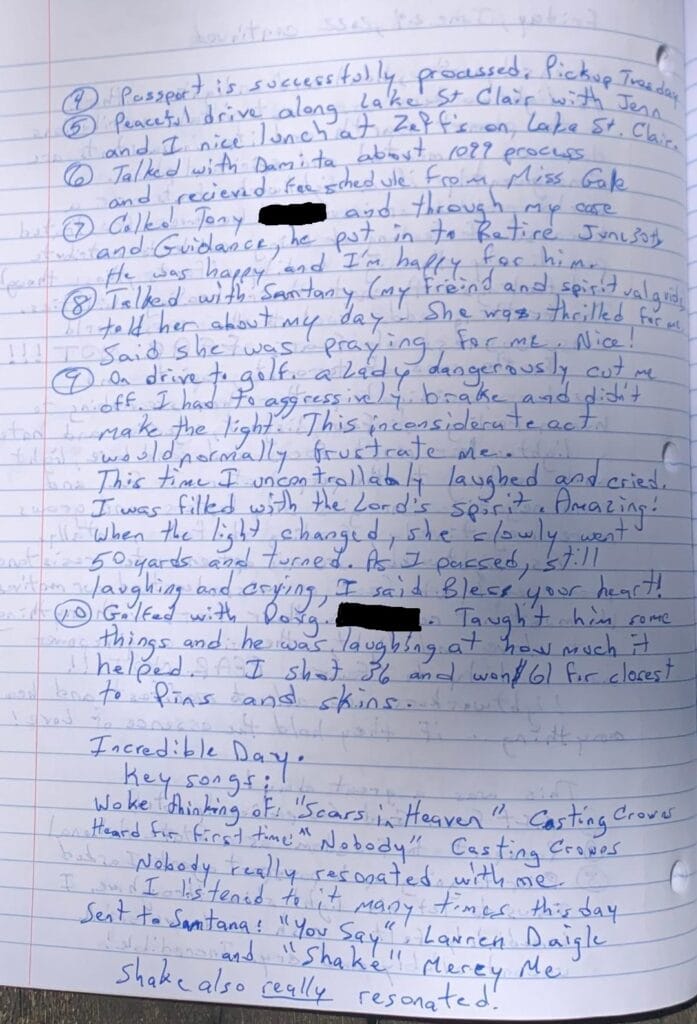 ④ Passport is successfully processed. Pickup Tuesday
⑤ Peaceful drive along Lake St Clair with Jenn
and I nice lunch at Zeff's on Lake St. Clair.
⑥ Talked with Damita about 1099 process
and recieved fee schedule from Miss Gale
⑦ Called Tony and through my case
and Guidance, he put in to Retire June 30th
He was happy and I'm happy for him.
⑧ Talked with Santany (my freind and spiritual guide
told her about my day. She was thrilled for me.
Said she was praying for me. Nice!
⑨ On drive to golf a lady dangerously cut me
off. I had to aggressively brake and didn't
make the light. This inconsiderate act
would normally frustrate me.
This time I uncontrollably laughed and cried.
I was filled with the Lord's spirit. Amazing!
When the light changed, she slowly went
50 yards and turned. As I passed, still
laughing and crying, I said Bless your heart!
⑩ Golfed with Doug. Taught him some
things and he was laughing at how much it
helped. I shot 36 and won $61 for closest
to Pins and skins.
Incredible Day.
Key songs:
Woke thinking of: "Scars in Heaven" Casting Crowns
Heard for first time "Nobody" Casting Crowns
Nobody really resonated with me.
I listened to it many times this day
Sent to Santana: "You Say" Lauren Daigle
and "Shake" Mercy Me
Shake also really resonated.